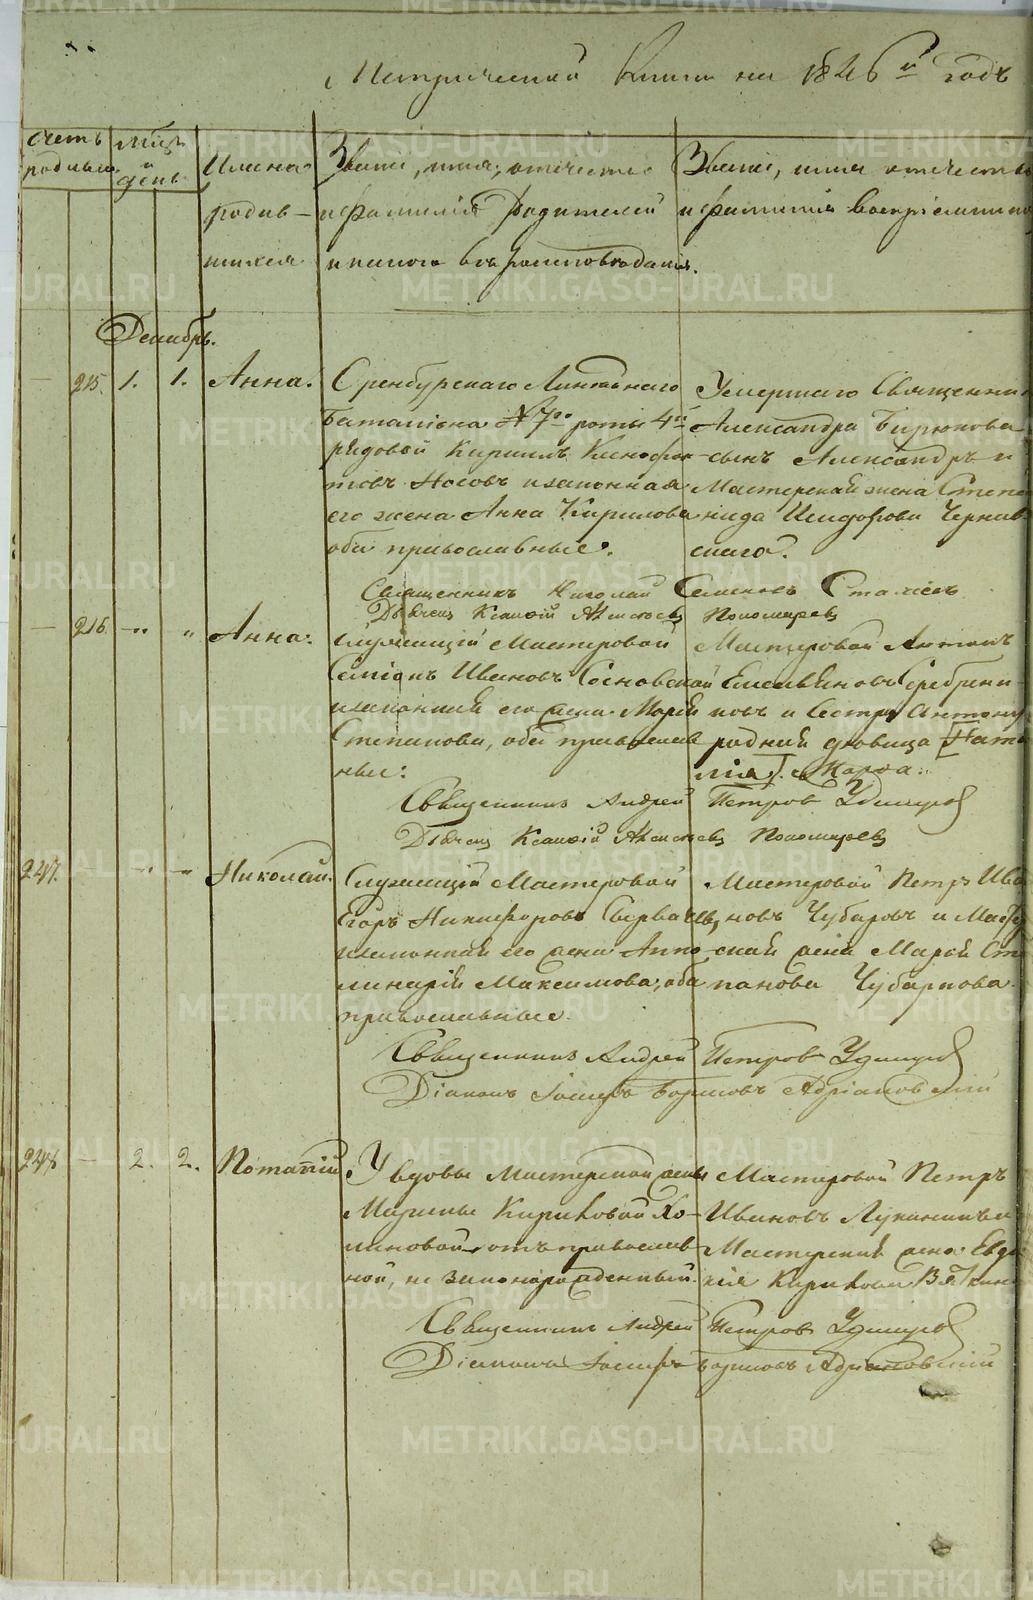 Метрической Книги на 1846й годъ
Счетъ родивш.
Мцъ и день
Имена родив-
шихся
Званiе, имя, отчество
и фамилiя родителей
и какого вероисповеданiя.
Званiе, имя отчество
и фамилiя воспрiемнико
Декабрь.
215. 1. 1. Анна.
Оренбургскаго Линейнаго
Баталiона №7го роты 4й
рядовой Кирилъ Ксенофон-
товъ Носовъ и законная
его жена Анна Кирилова
оба православные.
Умершаго Священни
Александра Бирюкова
сынъ Александръ и
Мастерская жена Степа
нида Исидорова Чернав
скаго.
Священникъ Николай Семеновъ
Дьячекъ Пономаревъ
216. -"- " Анна.
Служащiй Мастеровой
Семiонъ Ивановъ Сосновской
и законная его жена Марiя
Степанова, оба православ
ные.
Мастеровой Антонъ
Емельяновъ Серебрени
ковъ и Сестра Антону
родная девица [Ната
лiя]. Марфа.
Священникъ Андрей Петровъ Удинцовъ
Дьячекъ Пономаревъ
247. - -"- " Николай.
Служащiй Мастеровой
Егоръ Никифоровъ
и законная его жена Аппо
линарiя Максимова, оба
православные.
Мастеровой Петръ Ива
новъ Чубаровъ и Масте
ская жена Марiя Сте
панова Чубаркова.
Священникъ Андрей Петровъ Удинцовъ
Дiаконъ Iосифъ Борисовъ Адрiановскiй
248 - 2. 2. Потапiй
У вдовы мастерской жены
Марьи Кириковой Хо-
миновой отъ православ-
ной, не законорожденный.
Мастеровой Петръ
Ивановъ Луканинъ и
Мастерская жена Евдо
кiя Кирикова Вяткин
Священникъ Андрей Петровъ Удинцовъ
Дiаконъ Iосифъ Борисовъ Адрiановскiй
METRIKI.GASO-URAL.RU